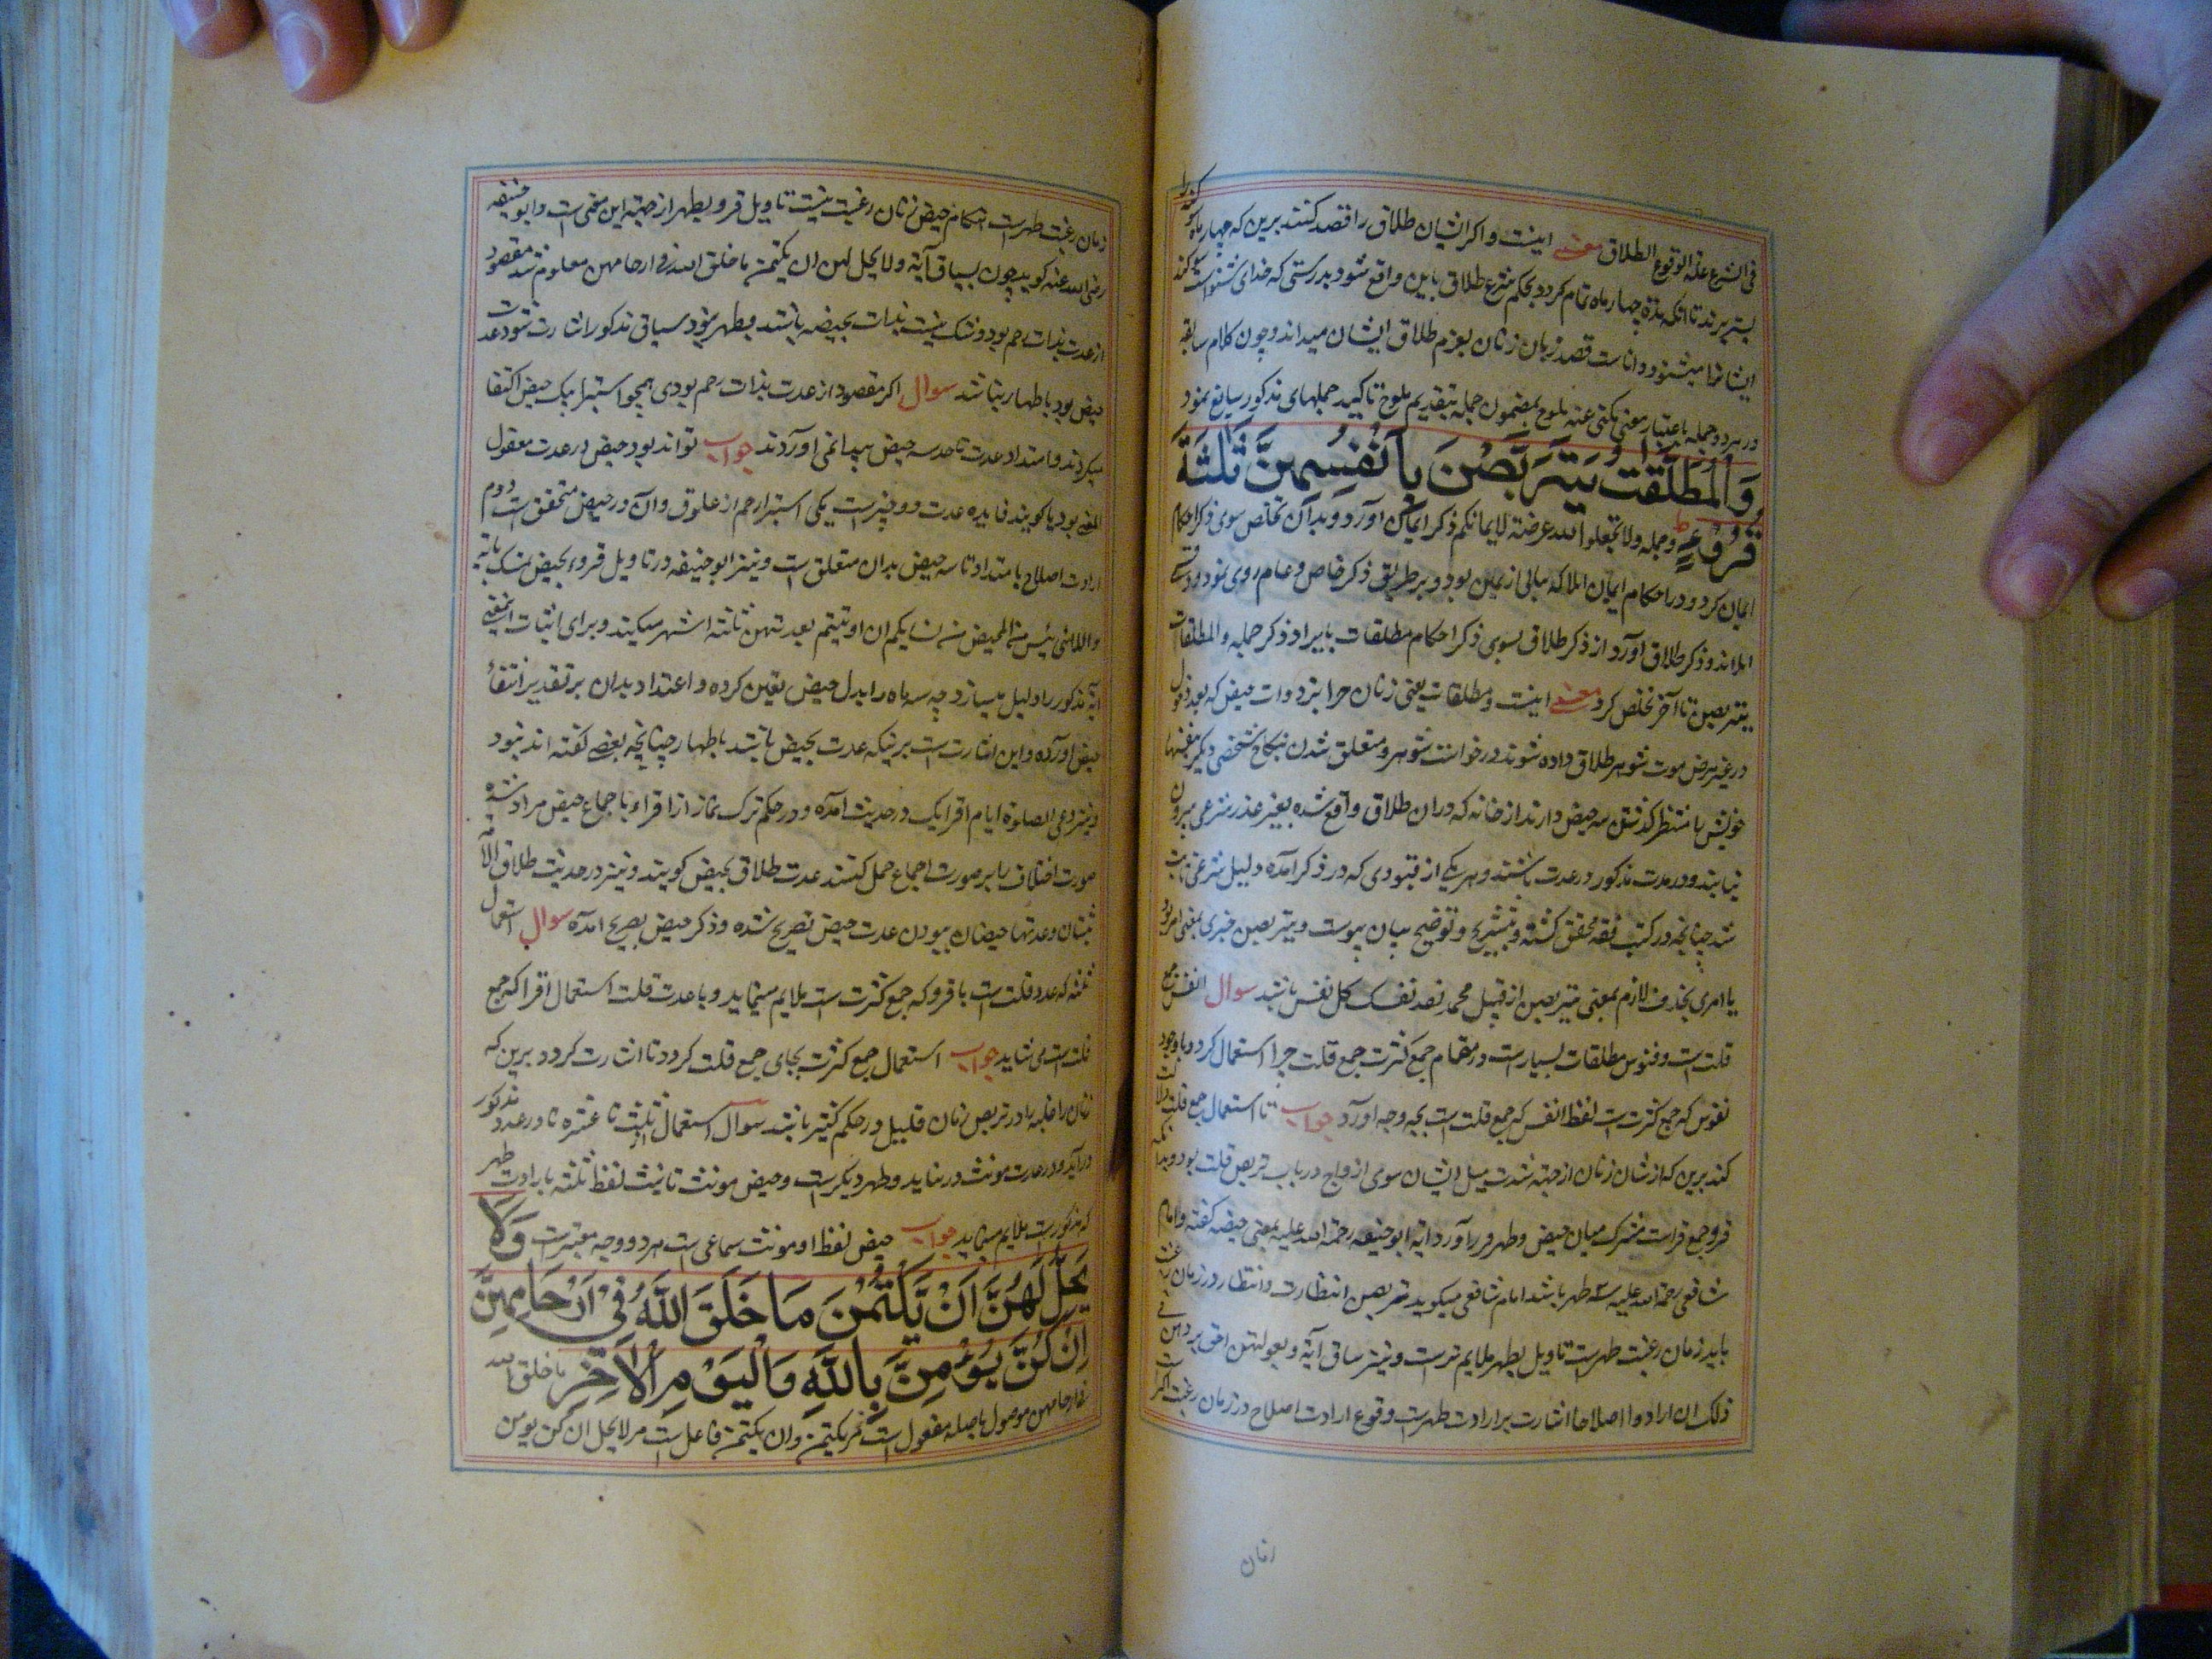 فی الشرع علة الوقوع الطلاق معنی اینست و اکر ایشان طلاق را قصد کنند برین که چهار ماه
بسر برند تا انکه مدة چهار ماه تمام کردد بحکم شرع طلاق باین واقع شود بدرستی که خدای شنواست
ایشانرا میشنود و داناست قصد زیان زنان بعزم طلاق ایشان میداند و چون کلام سابقه
در هر دو جمله باعتبار معنی مکنی عنه ملوح بمضمون جمله بتقدیم ملوح تاکید جملهای مذکور سایغ نمود
وَالْمُطَلَّقٰتُ یَتَرَبَّصْنَ بِاَنْفُسِهِنَّ ثَلٰثَةَ
قُرُوْءٍ ط و جمله ولا تجعلوا الله عرضة لایمانکم ذکر ایمان آورد و بدان تخلص سوی ذکر احکام
ایمان کرد و در احکام ایمان ایلا که یمینی از یمین بود و بر طریق ذکر خاص و عام روی نمود
ایلا اند و ذکر طلاق آورد از ذکر طلاق بسوی ذکر احکام مطلقات بایراد ذکر جمله والمطلقات
یتربصن تا آخر تخلص کرد معنی اینست و مطلقات یعنی زنان حرایر ذوات حیض که بعد دخول
در غیر مرض موت شوهر طلاق داده شوند درخواست شوهر و متعلق شدن نکاح شخصی دیکر بنفسها
خویش با منتظر کذشتن سه حیض دارند از خانه که دران طلاق واقع شده بغیر عذر شرعی بیرون
نیایند و در مدت مذکور در عدت باشند و هر یکی از قیودی که در ذکر آمده دلیل شرعی ثابت
شد چنانچه در کتب فقه محقق کشته و بتشریح و توضیح بیان پیوست و یتربصن خبری بمعنی امر بود
یا امری بحذف لازم بمعنی لیتربصن از قبیل محمد تفد نفسک کل نفس باشد سوال انفس جمع
قلت است و نفوس مطلقات بسیار است در مقام جمع کثرت جمع قلت چرا استعمال کرد و باوجود
نفوس که جمع کثرت است لفظ انفس که جمع قلت است بچه وجه آورد جواب تا استعمال جمع قلت دلالت
کند برین که از شان زنان از جهته شدت میل ایشان سوی ازواج در باب تربص قلت بود و بدانکه
قروء جمع قراست مشترک میان حیض و طهر ور آورد ایه ابو حنیفه رحمة الله علیه بمعنی حیض کفته و امام
شافعی رحمة الله علیه سه طهر باشد امام شافعی میکوید تربصن انتظارست و انتظار در زمان رغبت
باید زمان رغبت طهر است تاویل بطهر ملایم ترست و نیز سیاق آیة و بعولتهن احق بردهن فی
ذلک ان ارادوا اصلاحا اشارت بر ارادت طهرست و وقوع ارادت اصلاح در زمان رغبت است
زمان
زمان رغبت طهر است هنکام حیض زنان رغبت نیست تاویل قروء بطهر از جهته این معنی است و ابو حنیفه
رضی الله عنه کوید چون بسیاق آیة ولا یحل لهن ان یکتمن ما خلق الله فی ارحامهن معلوم شد مقصود
از عدت بذات رحم بود و شک نیست بذات بحیضه باشد و بطهر نبود سیاق مذکور اشارت شود عدت
حیض بود باطهار نباشد سوال اکر مقصود از عدت بذات رحم بودی همچو استبرا بیک حیض اکتفا
میکردند و امتداد عدت تا حد سه حیض پیدا نمی آوردند جواب تواند بود حیض در عدت معقول
المعنی بود یا کویند فایده عدت دو چیز است یکی استبرا رحم از علوق و آن در حیض متحقق است دوم
ارادت اصلاح بامتداد تا سه حیض بدان متعلق است و نیز ابو حنیفه در تاویل قروء بحیض تمسک بآیه
واللائی یئسن من المحیض من نسایکم ان ارتبتم بعدتهن ثلثة اشهر میکند و برای اثبات اینمعنی
آیة مذکور را دلیل میسازد چه سه ماه را بدل حیض تعین کرده و اعتداد بدان بر تقدیر انتفاء
حیض آورده و این اشارت است بر نیکه عدت بحیض باشد باطهار چنانچه بعضی کفته اند نبود
و نیز دعی الصلوة ایام اقرایک در حدیث آمده و در حکم ترک نماز از اقراء باجماع حیض مراد شده
صورت اختلاف را بر صورت اجماع حمل کنند عدت طلاق بحیض کویند و نیز در حدیث طلاق الامة
ثنتان و عدتها حیضان ببودن عدت حیض تصریح شده و ذکر حیض بصریح آمده سوال استعمال
ثلثه که عدد قلت است با قروء که جمع کثرت است ملایم مینماید و با عدت قلت استعمال اقرا که جمع
قلت است می شاید جواب استعمال جمع کثرت بجای جمع قلت کردد تا اشارت کردد برین که
زنان را غلبه را در تربص زنان قلیل در حکم کثیر باشد سوال استعمال ثلثت تا عشره تا در عدد مذکور
در آید و در عدت مونث در نیاید و طهر دیکرست و حیض مونث تانیث لفظ ثلثه بارادت طهر
که مذکورست ملایم مینماید جواب حیض لفظ او مونث سماعی است هر دو وجه معتبرست وَلَا
یَحِلُّ لَهُنَّ اَنْ یَّکْتُمْنَ مَا خَلَقَ اللّٰهُ فِیْ اَرْحَامِهِنَّ
اِنْ کُنَّ یُؤْمِنَّ بِاللّٰهِ وَالْیَوْمِ الْاٰخِرِ ما خلق الله
فی ارحامهن موصول باصله مفعول است مر یکتمن و ان یکتمن فاعل است مر لا یحل ان کن یومن